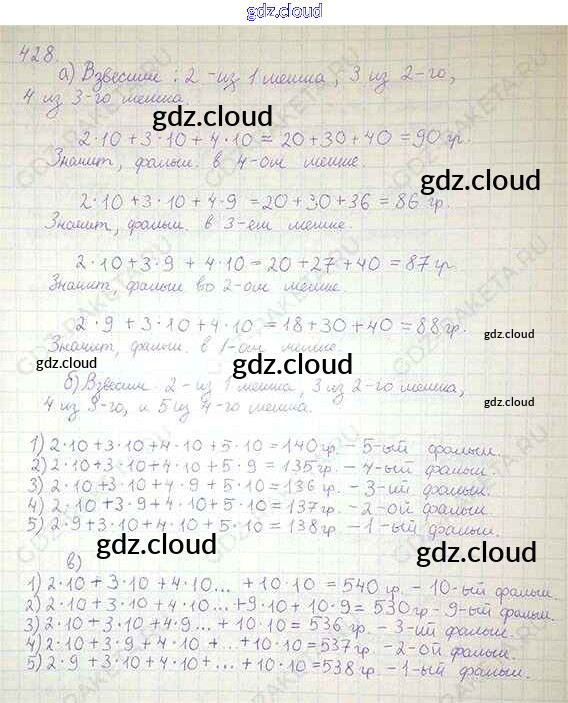 gdz.cloud
428.
а) Взвесим: 2 - из 1 мешка, 3 из 2-го,
4 из 3-го мешка.
gdz.cloud
2·10 + 3·10 + 4·10 = 20 + 30 + 40 = 90 гр.
Значит, фальш. в 4-ом мешке.
gdz.cloud
2·10 + 3·10 + 4·9 = 20 + 30 + 36 = 86 гр.
Значит, фальш. в 3-ем мешке.
2·10 + 3·9 + 4·10 = 20 + 27 + 40 = 87 гр
Значит, фальш во 2-ом мешке
2·9 + 3·10 + 4·10 = 18 + 30 + 40 = 88 гр.
gdz.cloud
Значит, фальш. в 1-ом мешке.
gdz.cloud gdz.cloud
б) Взвесим: 2 - из 1 мешка, 3 из 2-го мешка,
4 из 3-го, и 5 из 4-го мешка.
gdz.cloud
1) 2·10 + 3·10 + 4·10 + 5·10 = 140 гр. - 5-ый фальш.
2) 2·10 + 3·10 + 4·10 + 5·9 = 135 гр. - 4-ый фальш.
3) 2·10 + 3·10 + 4·9 + 5·10 = 136 гр. - 3-ий фальш.
4) 2·10 + 3·9 + 4·10 + 5·10 = 137 гр. - 2-ой фальш.
5) 2·9 + 3·10 + 4·10 + 5·10 = 138 гр. - 1-ый фальш.
gdz.cloud gdz.cloud
в)
1) 2·10 + 3·10 + 4·10... + 10·10 = 540 гр. - 10-ый фальш.
2) 2·10 + 3·10 + 4·10... + 9·10 + 10·9 = 530 гр - 9-ый фальш.
3) 2·10 + 3·10 + 4·9... + 10·10 = 536 гр. - 3-ий фальш.
4) 2·10 + 3·9 + 4·10 + ... + 10·10 = 537 гр. - 2-ой фальш.
5) 2·9 + 3·10 + 4·10 + ... + 10·10 = 538 гр. - 1-ый фальш.